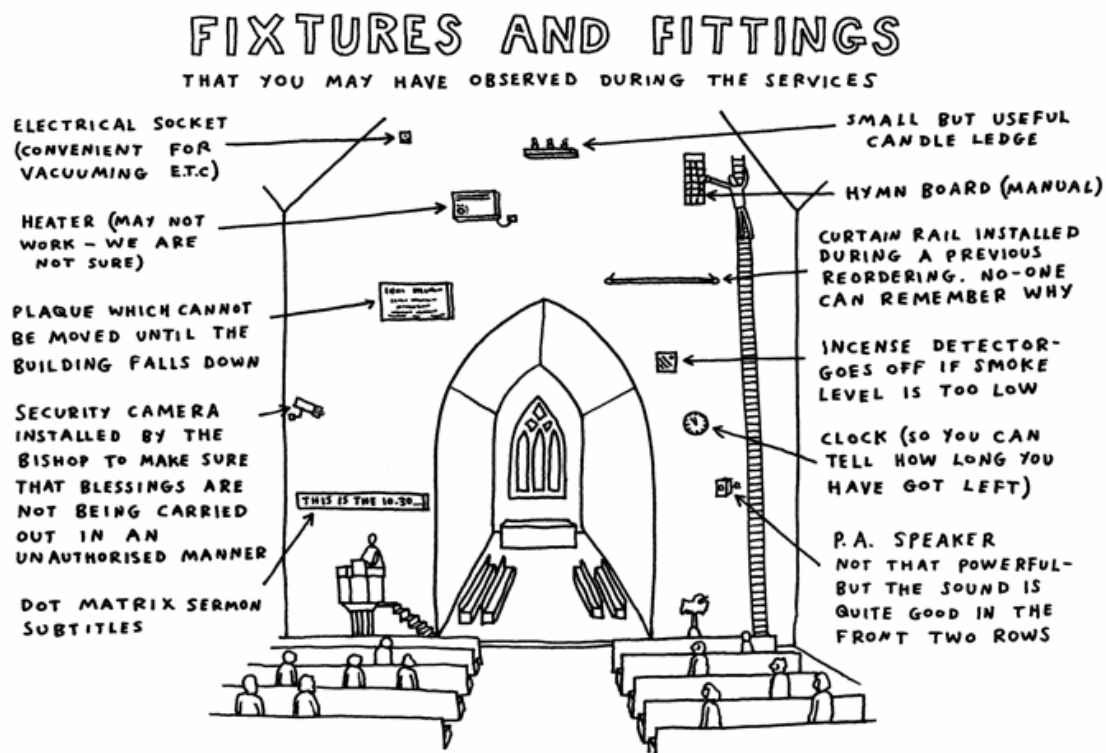 FIXTURES AND FITTINGS
THAT YOU MAY HAVE OBSERVED DURING THE SERVICES
ELECTRICAL SOCKET
(CONVENIENT FOR
VACUUMING E.T.C)
HEATER (MAY NOT
WORK - WE ARE
NOT SURE)
PLAQUE WHICH CANNOT
BE MOVED UNTIL THE
BUILDING FALLS DOWN
SECURITY CAMERA
INSTALLED BY THE
BISHOP TO MAKE SURE
THAT BLESSINGS ARE
NOT BEING CARRIED
OUT IN AN
UNAUTHORISED MANNER
DOT MATRIX SERMON
SUBTITLES
THIS IS THE 10.30...
SMALL BUT USEFUL
CANDLE LEDGE
HYMN BOARD (MANUAL)
CURTAIN RAIL INSTALLED
DURING A PREVIOUS
REORDERING. NO-ONE
CAN REMEMBER WHY
INCENSE DETECTOR-
GOES OFF IF SMOKE
LEVEL IS TOO LOW
CLOCK (SO YOU CAN
TELL HOW LONG YOU
HAVE GOT LEFT)
P.A. SPEAKER
NOT THAT POWERFUL-
BUT THE SOUND IS
QUITE GOOD IN THE
FRONT TWO ROWS